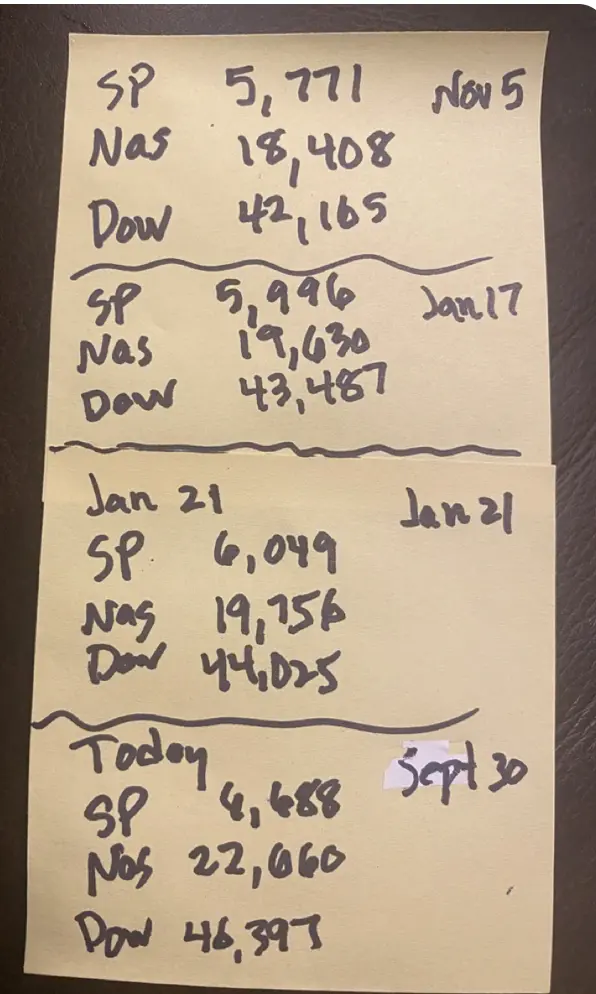 SP 5,771 Nov 5
Nas 18,408
Dow 42,165
SP 5,996 Jan 17
Nas 19,630
Dow 43,487
Jan 21 Jan 21
SP 6,049
Nas 19,756
Dow 44,025
Today Sept 30
SP 6,688
Nas 22,660
Dow 46,397